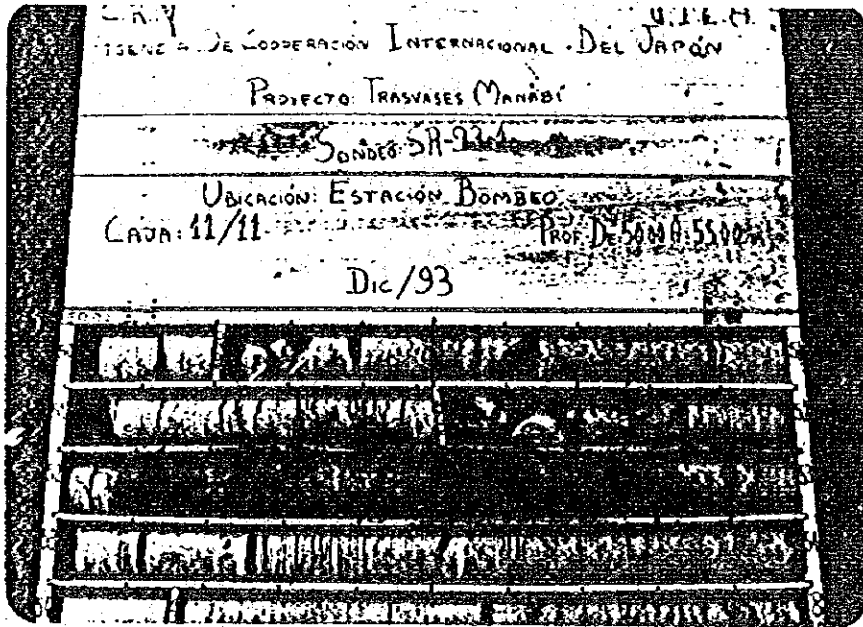 C.R.M
DE COOPERACIÓN INTERNACIONAL DEL JAPÓN
PROYECTO: TRASVASES MANABÍ
SONDEO: SA-93-1
UBICACIÓN: ESTACIÓN BOMBEO
CAJA: 11/11 PROF. DE 50.00 A: 55.00
DIC/93